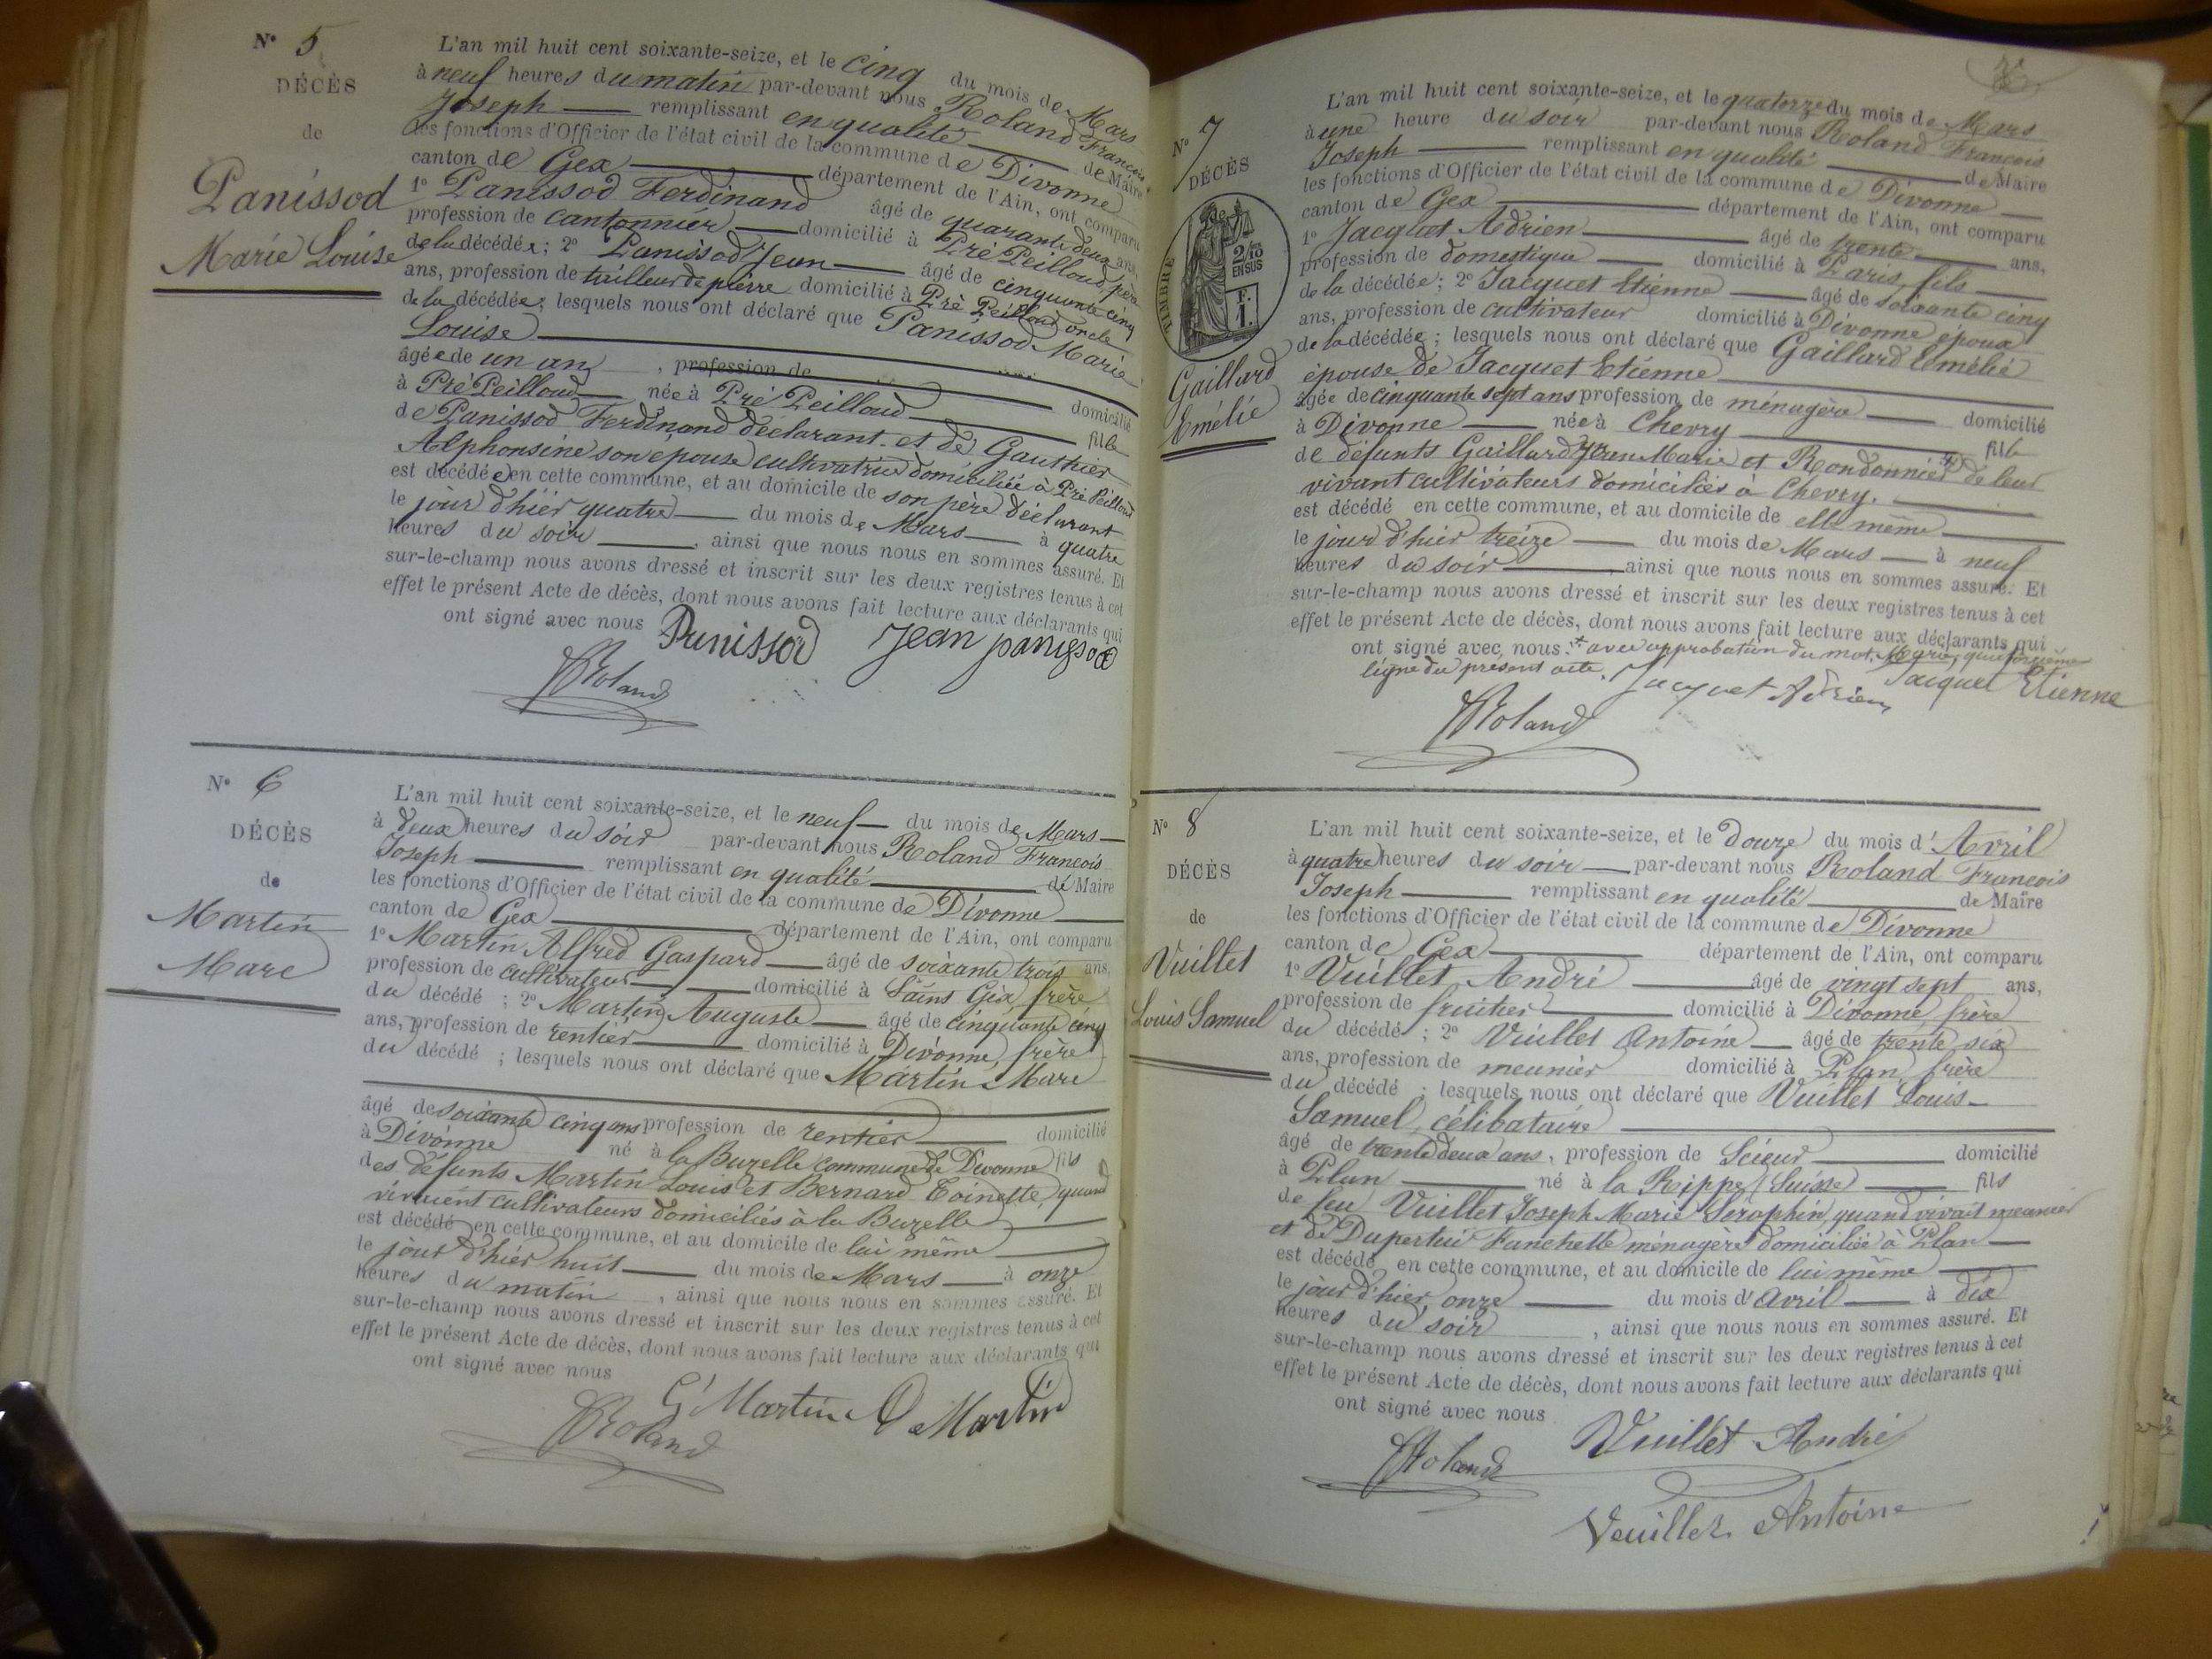 N° 5
DÉCÈS
de
Panissod
Marie Louise
L'an mil huit cent soixante-seize, et le cinq du mois de Mars
à neuf heures du matin par-devant nous Roland François
Joseph remplissant en qualité de Maire
les fonctions d'Officier de l'état civil de la commune de Divonne
canton de Gex département de l'Ain, ont comparu
1° Panissod Ferdinand âgé de quarante deux ans,
profession de cantonnier domicilié à Pré Peilloud, père
de la décédée; 2° Panissod Jean âgé de cinquante cinq
ans, profession de tailleur de pierre domicilié à Pré Peilloud oncle
de la décédée; lesquels nous ont déclaré que Panissod Marie
Louise
âgée de un an, profession de domicilié
à Pré Peilloud née à Pré Peilloud fille
de Panissod Ferdinand déclarant et de Gauthier
Alphonsine son épouse cultivatrice domiciliée à Pré Peilloud
est décédée en cette commune, et au domicile de son père déclarant
le jour d'hier quatre du mois de Mars à quatre
heures du soir, ainsi que nous nous en sommes assuré. Et
sur-le-champ nous avons dressé et inscrit sur les deux registres tenus à cet
effet le présent Acte de décès, dont nous avons fait lecture aux déclarants qui
ont signé avec nous Panissod Jean panissod
Roland
N° 6
DÉCÈS
de
Martin
Marc
L'an mil huit cent soixante-seize, et le neuf du mois de Mars
à deux heures du soir par-devant nous Roland François
Joseph remplissant en qualité de Maire
les fonctions d'Officier de l'état civil de la commune de Divonne
canton de Gex département de l'Ain, ont comparu
1° Martin Alfred Gaspard âgé de soixante trois ans,
profession de cultivateur domicilié à Saint Gix frère
du décédé; 2° Martin Auguste âgé de cinquante cinq
ans, profession de rentier domicilié à Divonne, frère
du décédé; lesquels nous ont déclaré que Martin Marc
âgé de soixante cinq ans profession de rentier domicilié
à Divonne né à la Buzelle commune de Divonne fils
des défunts Martin Louis et Bernard Toinette, quand
vivaient cultivateurs domiciliés à la Buzelle
est décédé en cette commune, et au domicile de lui même
le jour d'hier huit du mois de Mars à onze
heures du matin, ainsi que nous nous en sommes assuré. Et
sur-le-champ nous avons dressé et inscrit sur les deux registres tenus à cet
effet le présent Acte de décès, dont nous avons fait lecture aux déclarants qui
ont signé avec nous
G Martin A Martin
Roland
N° 7
DÉCÈS
de
TIMBRE
2/10
EN SUS
F.
1.
Gaillard
Emélie
L'an mil huit cent soixante-seize, et le quatorze du mois de Mars
à une heure du soir par-devant nous Roland François
Joseph remplissant en qualité de Maire
les fonctions d'Officier de l'état civil de la commune de Divonne
canton de Gex département de l'Ain, ont comparu
1° Jacquet Adrien âgé de trente ans,
profession de domestique domicilié à Paris, fils
de la décédée; 2° Jacquet Etienne âgé de soixante cinq
ans, profession de cultivateur domicilié à Divonne époux
de la décédée; lesquels nous ont déclaré que Gaillard Emélie
épouse de Jacquet Etienne
âgée de cinquante sept ans profession de ménagère domicilié
à Divonne née à Chevry fille
de défunts Gaillard Jean Marie et Rondonnier + de leur
vivant cultivateurs domiciliés à Chevry.
est décédé en cette commune, et au domicile de elle même
le jour d'hier treize du mois de Mars à neuf
heures du soir, ainsi que nous nous en sommes assuré. Et
sur-le-champ nous avons dressé et inscrit sur les deux registres tenus à cet
effet le présent Acte de décès, dont nous avons fait lecture aux déclarants qui
ont signé avec nous. + avec approbation du mot. Marie, quatorzième
ligne du présent acte. Jacquet Adrien Jacquet Etienne
Roland
N° 8
DÉCÈS
de
Vuillet
Louis Samuel
L'an mil huit cent soixante-seize, et le Douze du mois d'Avril
à quatre heures du soir par-devant nous Roland François
Joseph remplissant en qualité de Maire
les fonctions d'Officier de l'état civil de la commune de Divonne
canton de Gex département de l'Ain, ont comparu
1° Vuillet André âgé de vingt sept ans,
profession de fruitier domicilié à Divonne frère
du décédé; 2° Vuillet Antoine âgé de trente six
ans, profession de meunier domicilié à Plan, frère
du décédé; lesquels nous ont déclaré que Vuillet Louis
Samuel, célibataire
âgé de trente deux ans, profession de Scieur domicilié
à Plan né à la Rippe (Suisse) fils
de feu Vuillet Joseph Marie Séraphin, quand vivait meunier
et de Dupertuis Fanchette ménagère domiciliée à Plan
est décédé en cette commune, et au domicile de lui même
le jour d'hier, onze du mois d'Avril à dix
heures du soir, ainsi que nous nous en sommes assuré. Et
sur-le-champ nous avons dressé et inscrit sur les deux registres tenus à cet
effet le présent Acte de décès, dont nous avons fait lecture aux déclarants qui
ont signé avec nous
Roland Vuillet André
Veuillez Antoine